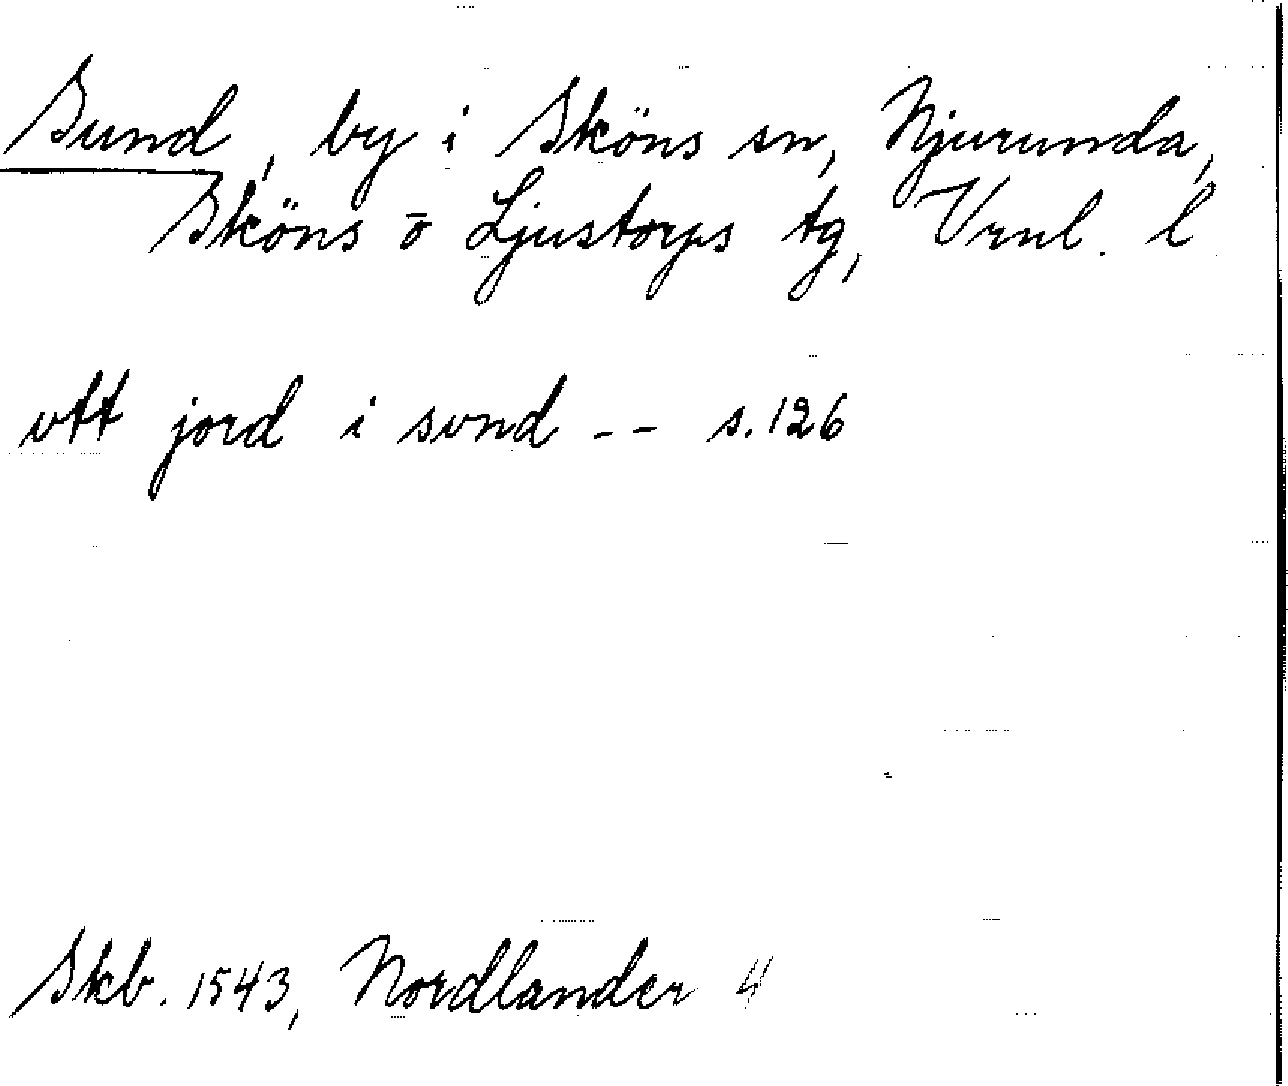 Sund, by i Sköns sn, Njurunda,
Sköns o Ljustorps tg, Vrnl. l
vtt jord i svnd -- s.126
Skb. 1543, Nordlander 4